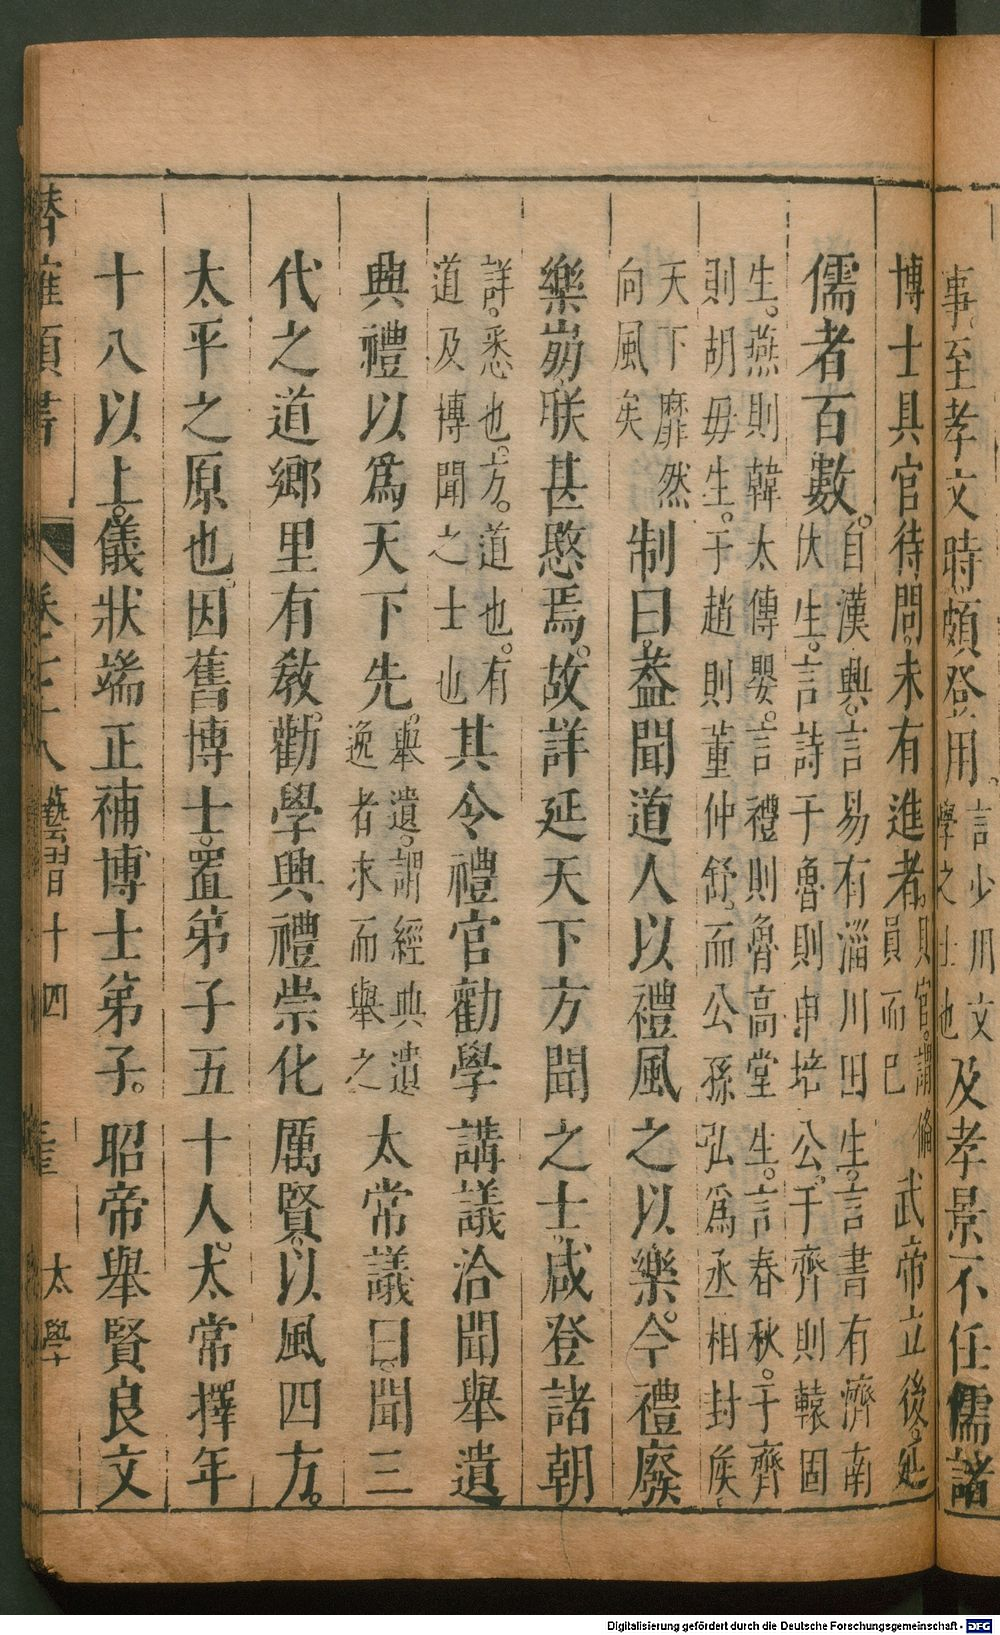 事。至孝文時頗登用。言少用文學之士也及孝景不任儒諸
博士具官待問。未有進者。具官。謂備員而已武帝立後。延
儒者百數。自漢興。言易有淄川田生。言書有濟南伏生。言詩于魯則申培公。于齊則轅固
生。燕則韓太傅嬰。言禮則魯高堂生。言春秋。于齊則胡毋生。于趙則董仲舒。而公孫弘爲丞相封侯。
天下靡然向風矣制曰。蓋聞道人以禮風之以樂。今禮廢
樂崩朕甚愍焉。故詳延天下方聞之士。咸登諸朝
詳。悉也。方。道也。有道及博聞之士也其令禮官勸學講議洽聞舉遺
典禮以爲天下先。舉遺。謂經典遺逸者求而舉之太常議曰。聞三
代之道鄉里有教。勸學興禮崇化厲賢。以風四方。
太平之原也。因舊博士。置弟子五十人。太常擇年
十八以上。儀狀端正補博士弟子。昭帝舉賢良文
藝習十四
太學
Digitalisierung gefördert durch die Deutsche Forschungsgemeinschaft - DFG